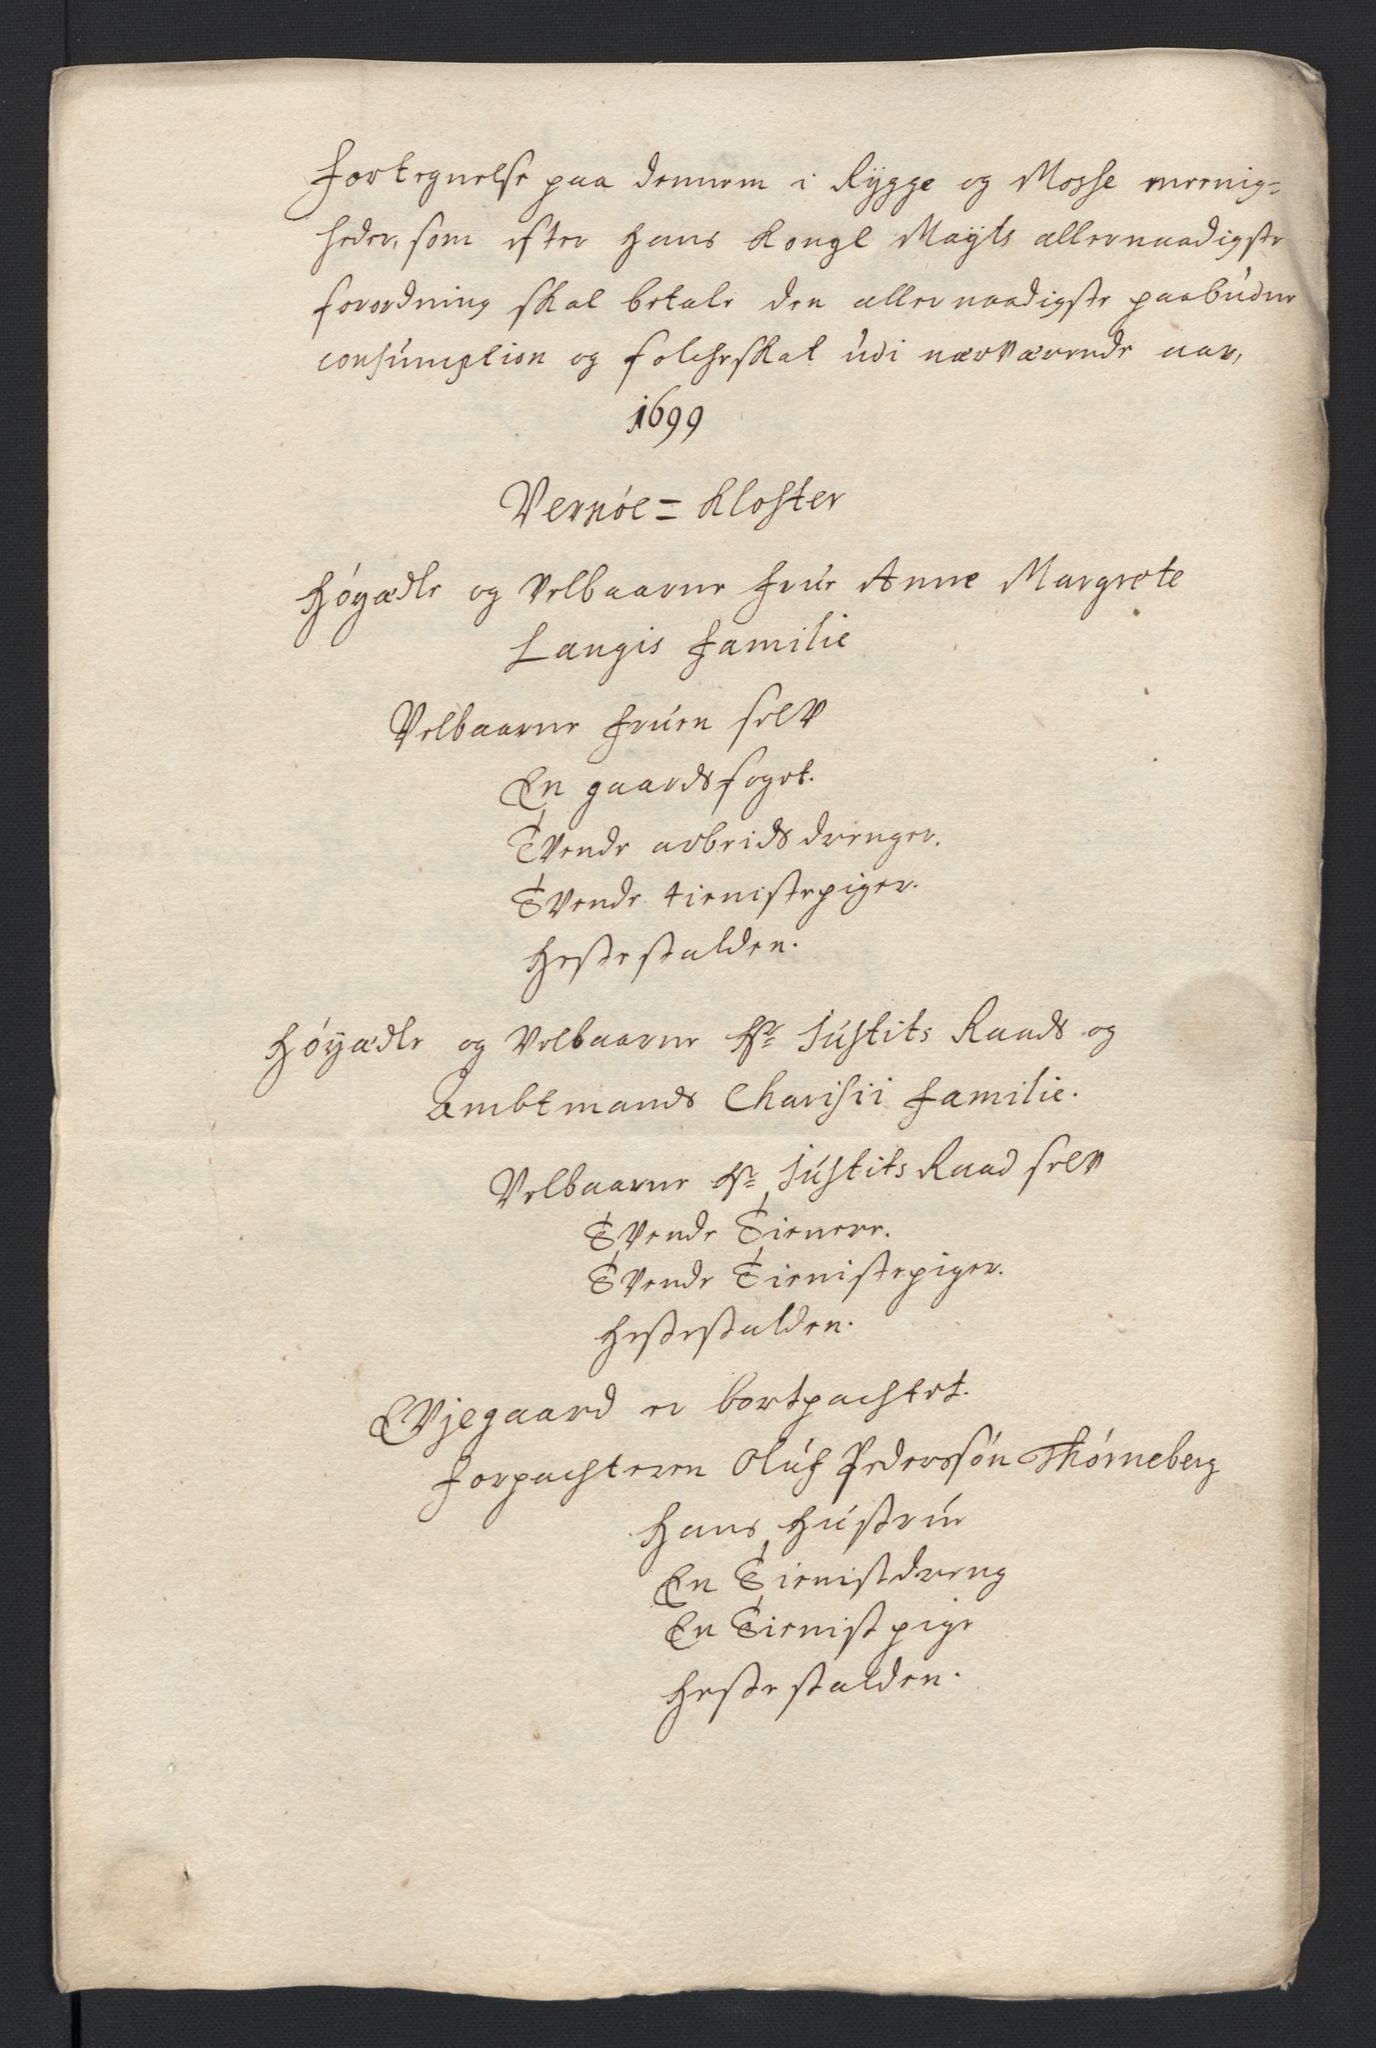 Fortegnelse paa dennem i Rygge og Mosse meenig=
heder, som efter hans Kongl Mayts allernaadigste
forordning skal betale den allernaadigste paabudne
consumption og folcheskat udi nærværende aar,
1699
Vernøe= Kloster
Høyædle og Velbaarne Frue Anne Margrete
Langis Familie
Velbaarne Fruen selv
En gaardsfoget.
Tvende arbeids drenger.
Tvende tienistepiger.
Hestestalden.
Høyædle og Velbaarne Hr Justits Raads og
Ambtmands Charisii Familie.
Velbaarne Hr Justits Raad selv
Tvende Tienere.
Tvende Tienistepiger.
Hestestalden.
Evjegaard er bortpachtet.
Forpachteren Oluf Pederssøn Thørneberg
Hans Hustrue
En Tienistdreng
En Tienistpige
Hestestalden.